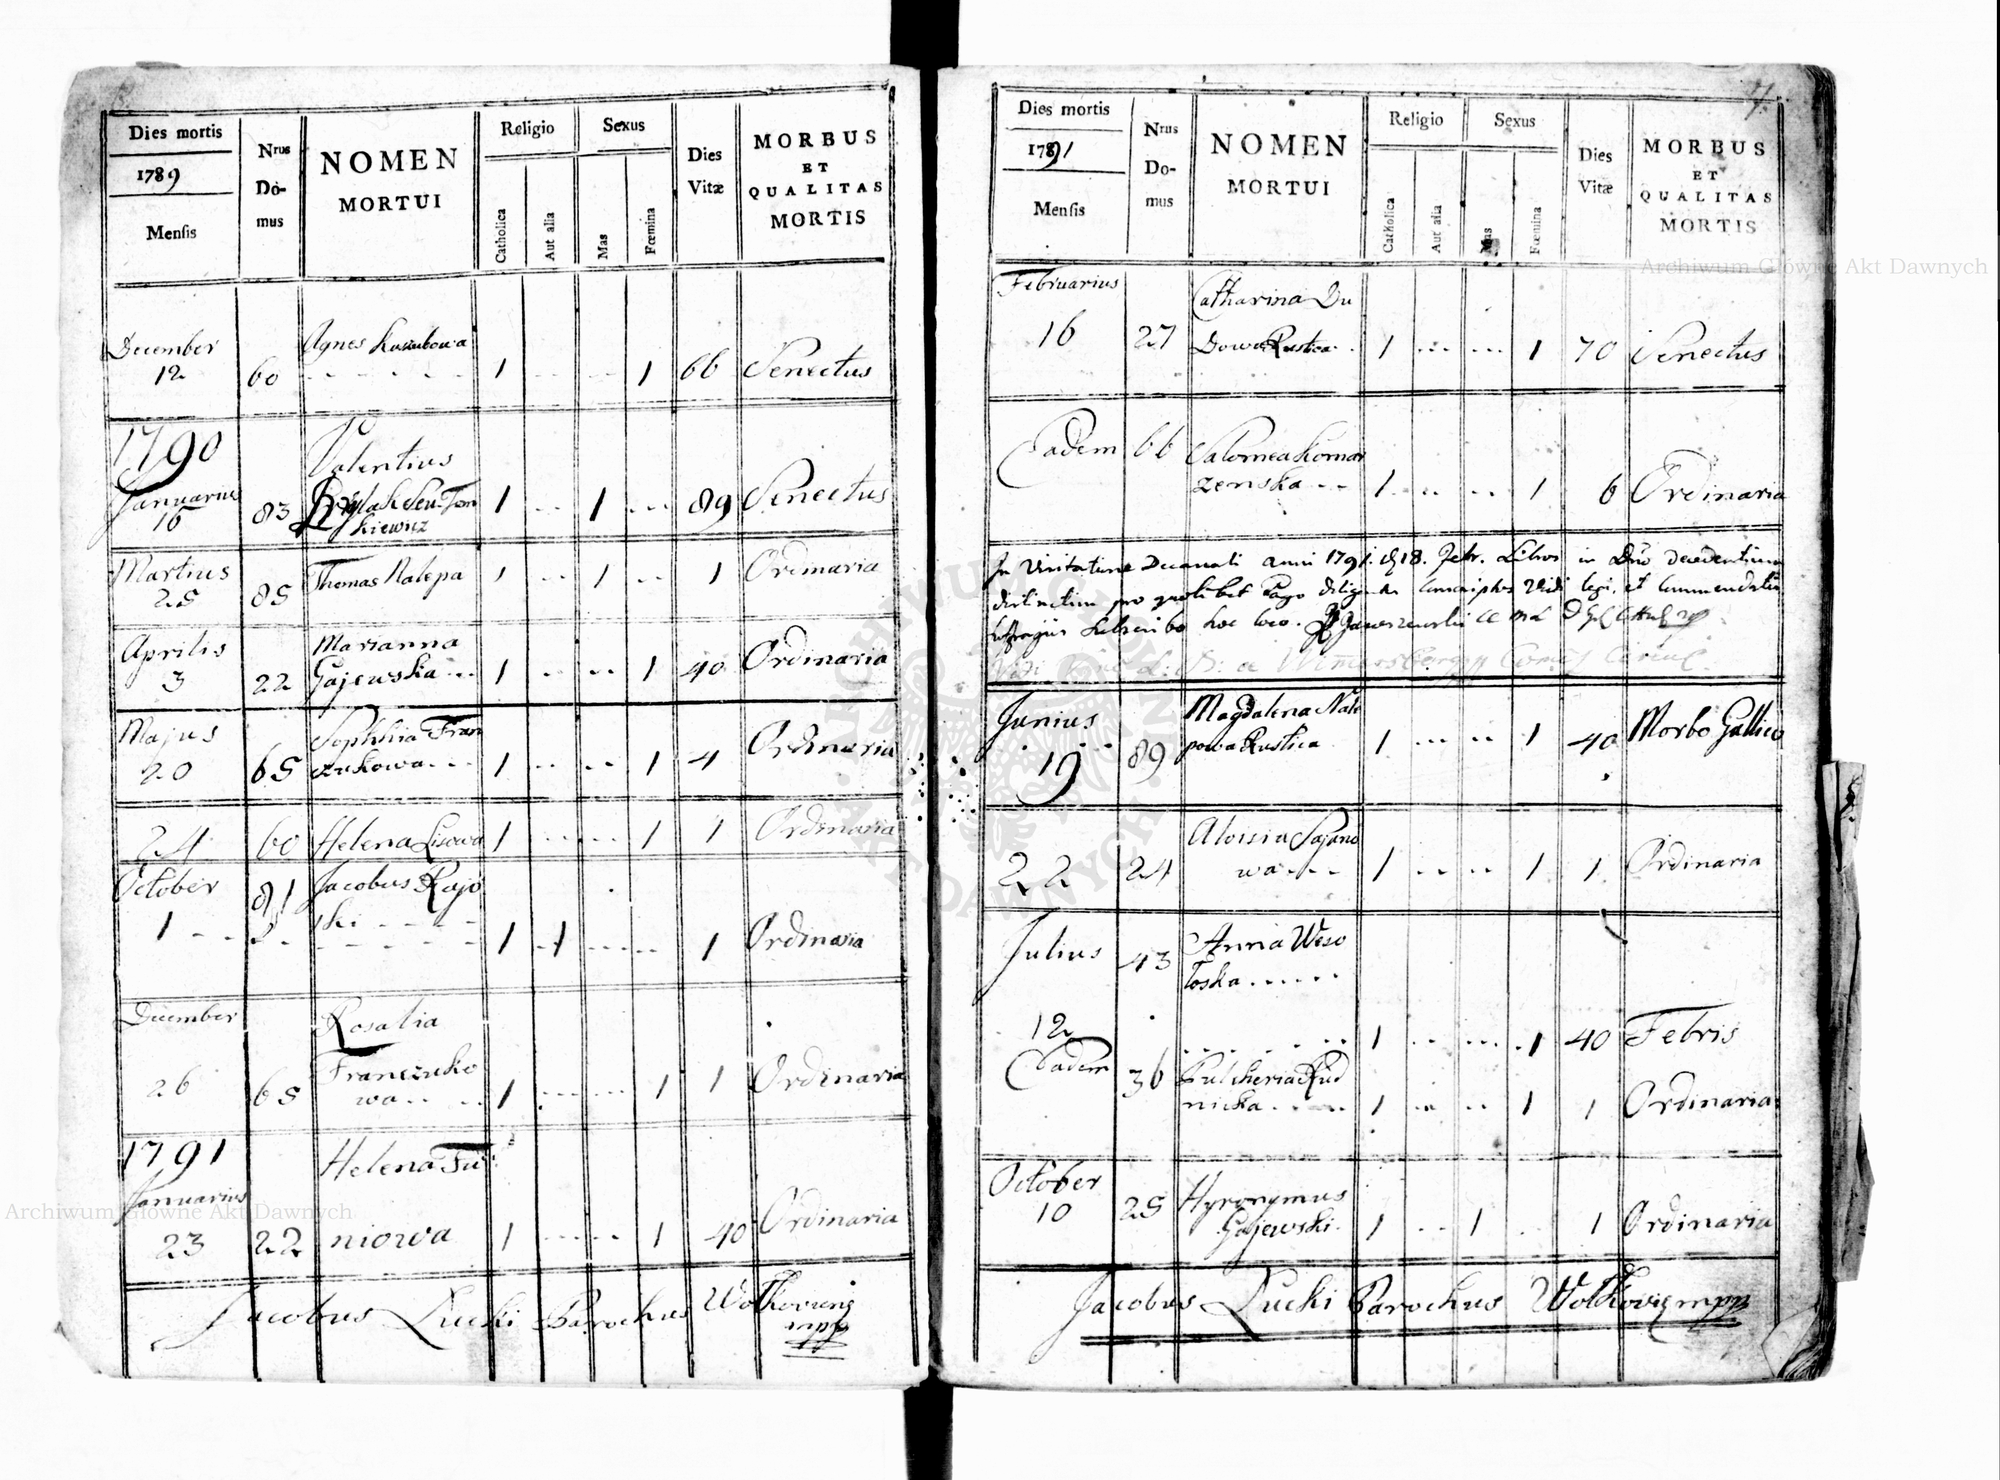 Dies mortis
1789
Mensis
Nrus Do-
mus
NOMEN
MORTUI
Religio
Catholica
Aut alia
Sexus
Mas
Fœmina
Dies
Vitæ
MORBUS
ET
QUALITAS
MORTIS
December
12 60 Agnes 1 1 66 Senectus
1790
Januarius
16 83 Valentius
seu Tom
kiewicz 1 1 89 Senectus
Martius
25 85 Thomas Nalepa 1 1 1 Ordinaria
Aprilis
3 22 Marianna
Gajewska 1 1 40 Ordinaria
Majus
20 65 Sophhia Fran
czukowa 1 1 4 Ordinaria
24 60 Helena Lisowa 1 1 1 Ordinaria
October
1 81 Jacobus Rajo
ski 1 1 1 Ordinaria
December
26 65 Rosalia
Franczuko
wa 1 1 1 Ordinaria
1791
Januarius
23 22 Helena Fu
niowa 1 1 40 Ordinaria
Jacobus Lucki Parochus Wolkovieng
mpp
Dies mortis
1791
Mensis
Nrus
Do-
mus
NOMEN
MORTUI
Religio
Catholica
Aut alia
Sexus
Mas
Fœmina
Dies
Vitæ
MORBUS
ET
QUALITAS
MORTIS
Februarius
16 27 Catharina Du
Dowa Rustica 1 1 70 Senectus
Eadem 66 Salomea Komar
zenska 1 1 6 Ordinaria
In Visitatione Decanali anni 1791 d 18 Febr. Libros in Dno decedentium
distinctim pro quolibet Pago diligenter conscriptos Vidi legi, et commendatis
suffragiis subscribo hoc loco.
Vidi
Junius
19 89 Magdalena Nale
powa Rustica 1 1 40 Morbo Gallico
22 24 Aloisia Pajano
wa 1 1 1 Ordinaria
Julius 43 Anna Weso
łoska
12 1 1 40 Febris
Eadem 36 Pulcheria Rud
nicka 1 1 1 Ordinaria
October
10 25 Hyronymus
Gajewski 1 1 1 Ordinaria
Jacobus Lucki Parochus Wolkovieg mpp
Archiwum Główne Akt Dawnych
Archiwum Główne Akt Dawnych
ARCHIWUM GŁÓWNE AKT DAWNYCH